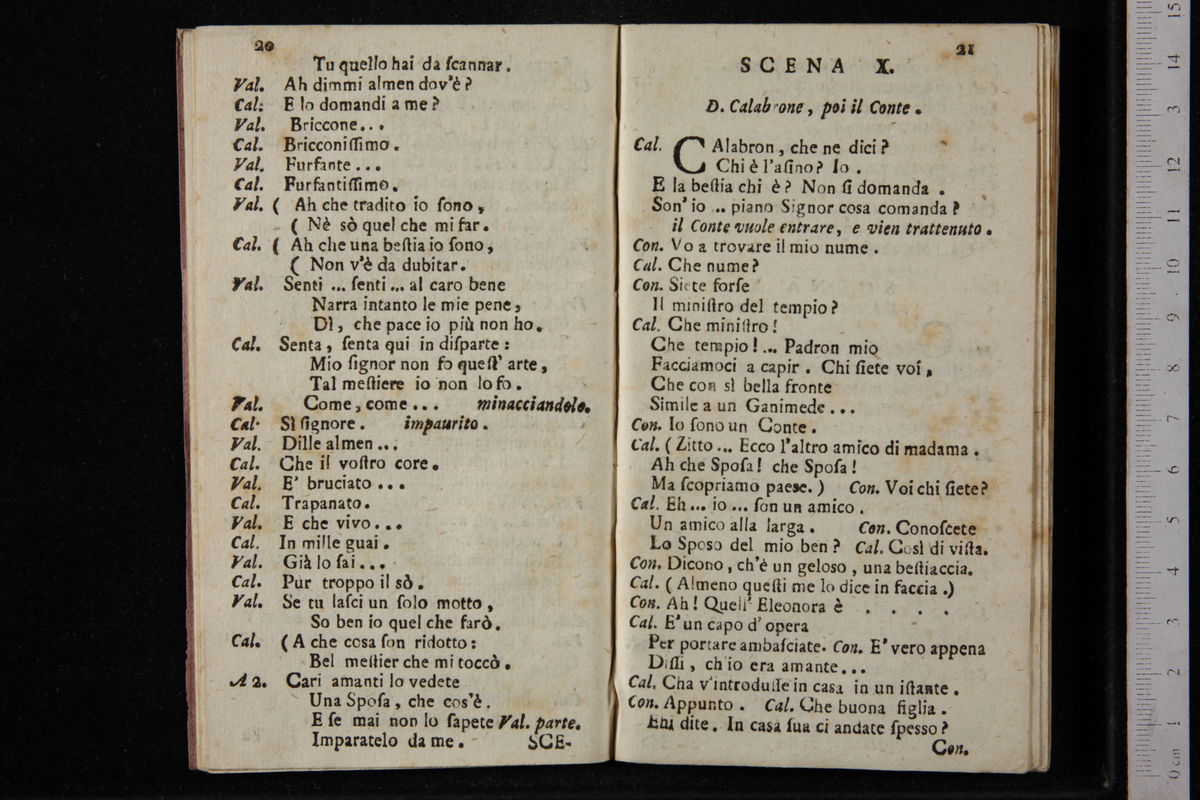 20
Tu quello hai da ſcannar.
Val. Ah dimmi almen dov'è?
Cal. E lo domandi a me?
Val. Briccone...
Cal. Bricconiſſimo.
Val. Furfante...
Cal. Furfantiſſimo.
Val. ( Ah che tradito io ſono,
( Nè sò quel che mi far.
Cal. ( Ah che una beſtia io ſono,
( Non v'è da dubitar.
Val. Senti ... ſenti ... al caro bene
Narra intanto le mie pene,
Dì, che pace io più non ho.
Cal. Senta, ſenta qui in diſparte:
Mio ſignor non ſo queſt' arte,
Tal meſtiere io non lo ſo.
Val. Come, come... minacciandolo.
Cal. Sì ſignore. impaurito.
Val. Dille almen...
Cal. Che il voſtro core.
Val. E' bruciato...
Cal. Trapanato.
Val. E che vivo...
Cal. In mille guai.
Val. Già lo ſai...
Cal. Pur troppo il sò.
Val. Se tu laſci un ſolo motto,
So ben io quel che farò.
Cal. (A che cosa ſon ridotto:
Bel meſtier che mi toccò.
A 2. Cari amanti lo vedete
Una Spoſa, che cos'è.
E ſe mai non lo ſapete Val. parte.
Imparatelo da me. SCE-
21
SCENA X.
D. Calabrone, poi il Conte.
Cal. CAlabron, che ne dici?
Chi è l'aſino? Io.
E la beſtia chi è? Non ſi domanda.
Son' io ... piano Signor cosa comanda?
il Conte vuole entrare, e vien trattenuto.
Con. Vo a trovare il mio nume.
Cal. Che nume?
Con. Siete forſe
Il miniſtro del tempio?
Cal. Che miniſtro!
Che tempio!... Padron mio
Facciamoci a capir. Chi ſiete voi,
Che con sì bella fronte
Simile a un Ganimede...
Con. Io ſono un Conte.
Cal. (Zitto... Ecco l'altro amico di madama.
Ah che Spoſa! che Spoſa!
Ma ſcopriamo paese.) Con. Voi chi ſiete?
Cal. Eh... io... ſon un amico.
Un amico alla larga. Con. Conoſcete
Lo Sposo del mio ben? Cal. Così di viſta.
Con. Dicono, ch'è un geloso, una beſtiaccia.
Cal. (Almeno queſti me lo dice in faccia.)
Con. Ah! Quell' Eleonora è . . . .
Cal. E' un capo d'opera
Per portare ambaſciate. Con. E' vero appena
Diſſi, ch'io era amante...
Cal. Cha v'introduſſe in casa in un iſtante.
Con. Appunto. Cal. Che buona figlia.
Ehi dite. In casa ſua ci andate ſpesso?
Con.